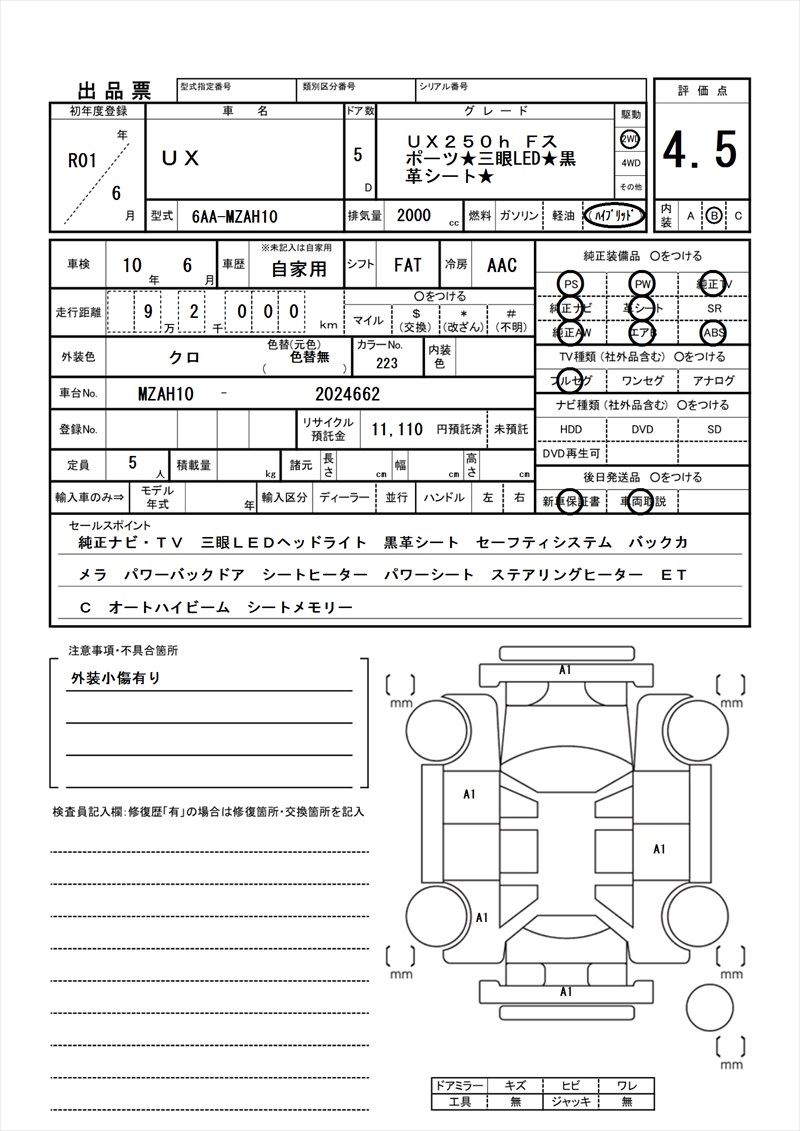 出品票 型式指定番号 類別区分番号 シリアル番号
評価点
初年度登録 車名 ドア数 グレード 駆動
年
R01
6
月
UX
5
D
UX250h Fス
ポーツ★三眼LED★黒
革シート★
2WD
4WD
その他
4.5
型式 6AA-MZAH10 排気量 2000 cc 燃料 ガソリン 軽油 (ﾊｲﾌﾞﾘｯﾄﾞ)
内装 A B C
車検 10 年 6 月 車歴 ※未記入は自家用 自家用 シフト FAT 冷房 AAC
走行距離 9 万 2 千 0 0 0 km
○をつける
マイル $(交換) *(改ざん) #(不明)
外装色 クロ 色替(元色) 色替無 ( ) カラーNo. 223 内装色
車台No. MZAH10 - 2024662
登録No. リサイクル預託金 11,110 円預託済 未預託
定員 5 人 積載量 kg 諸元 長さ cm 幅 cm 高さ cm
輸入車のみ⇒ モデル年式 年 輸入区分 ディーラー 並行 ハンドル 左 右
純正装備品 ○をつける
PS PW 純正TV
純正ナビ 革シート SR
純正AW エアB ABS
TV種類(社外品含む) ○をつける
フルセグ ワンセグ アナログ
ナビ種類(社外品含む) ○をつける
HDD DVD SD
DVD再生可
後日発送品 ○をつける
新車保証書 車両取説
セールスポイント
純正ナビ・TV 三眼LEDヘッドライト 黒革シート セーフティシステム バックカ
メラ パワーバックドア シートヒーター パワーシート ステアリングヒーター ET
C オートハイビーム シートメモリー
注意事項・不具合箇所
外装小傷有り
検査員記入欄:修復歴「有」の場合は修復箇所・交換箇所を記入
A1
[ ] mm
[ ] mm
A1
A1
A1
[ ] mm
[ ] mm
A1
[ ] mm
ドアミラー キズ ヒビ ワレ
工具 無 ジャッキ 無